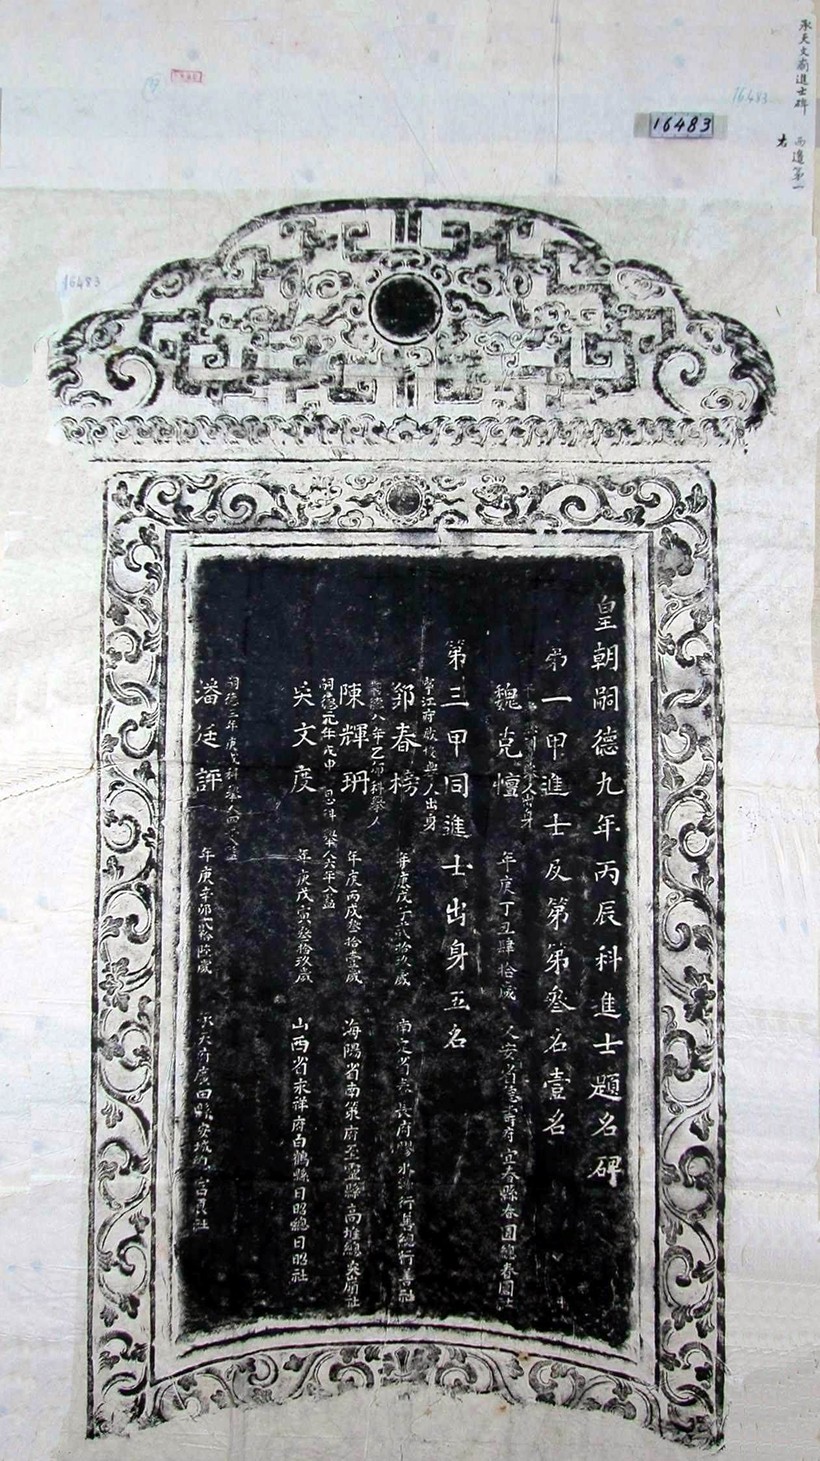 承天文廟進士碑
西邊第一
右
16483
16483
16483
皇朝嗣德九年丙辰科進士題名碑
第一甲進士及第第叁名壹名
舉人出身
魏克憻 年庚丁丑肆拾歲 安省德壽府宜春縣春園總春園社
第三甲同進士出身五名
人出身
鄧春榜 年庚戊子貳拾玖歲 南定省春長府膠水縣行善總行善社
八年乙卯科舉人
陳輝𤤰 年庚丙戌叁拾壹歲 海陽省南策府至靈縣高堆總突嶺社
嗣德元年戊申恩科舉人
吳文度 年庚戊寅叁拾玖歲 山西省永祥府白鶴縣日昭總日昭社
嗣德三年庚戌科舉人四
潘廷評 年庚辛卯貳拾陸歲 承天府廣田縣安城總富良社